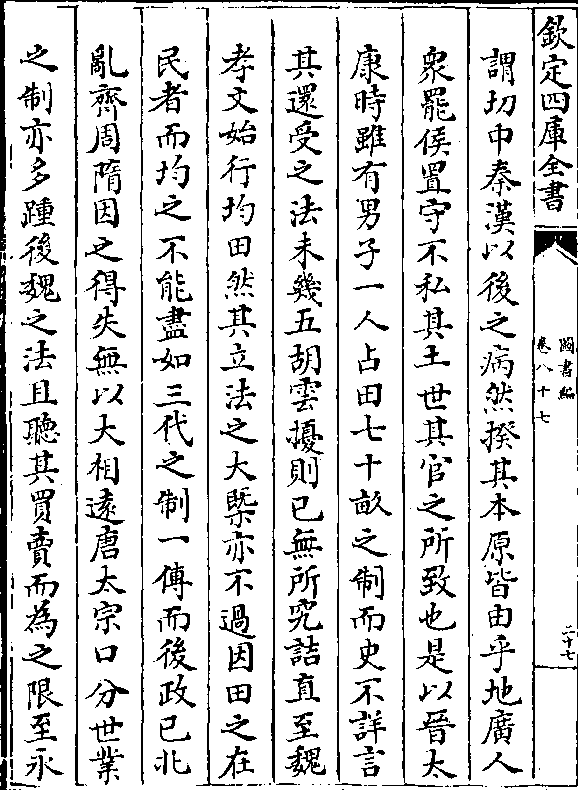 欽定四庫全書
圖書編
卷八十七
二十七
謂切中秦漢以後之病然揆其本原皆由乎地廣人
衆罷侯置守不私其土世其官之所致也是以晉太
康時雖有男子一人占田七十畝之制而史不詳言
其還受之法未幾五胡雲擾則已無所究詰直至魏
孝文始行均田然其立法之大槩亦不過因田之在
民者而均之不能盡如三代之制一傳而後政已北
亂齊周隋因之得失無以大相遠唐太宗口分世業
之制亦多踵後魏之法且聽其買賣而為之限至永